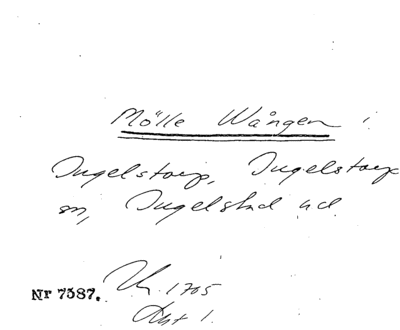 Mölle Wången
Ingelstorp, Ingelstorp
sn, Ingelstad hd.
Nr 7587. 1705
Akt 1.